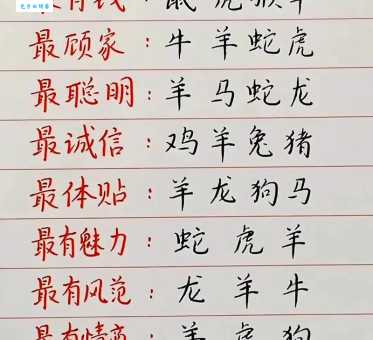 最有钱：鼠虎猴羊
最顾家：牛羊蛇虎
最聪明：羊马蛇龙
最诚信：鸡羊兔猪
最体贴：羊龙狗马
最有魅力：蛇虎羊
最有风范：龙羊牛
最有情商：羊虎狗